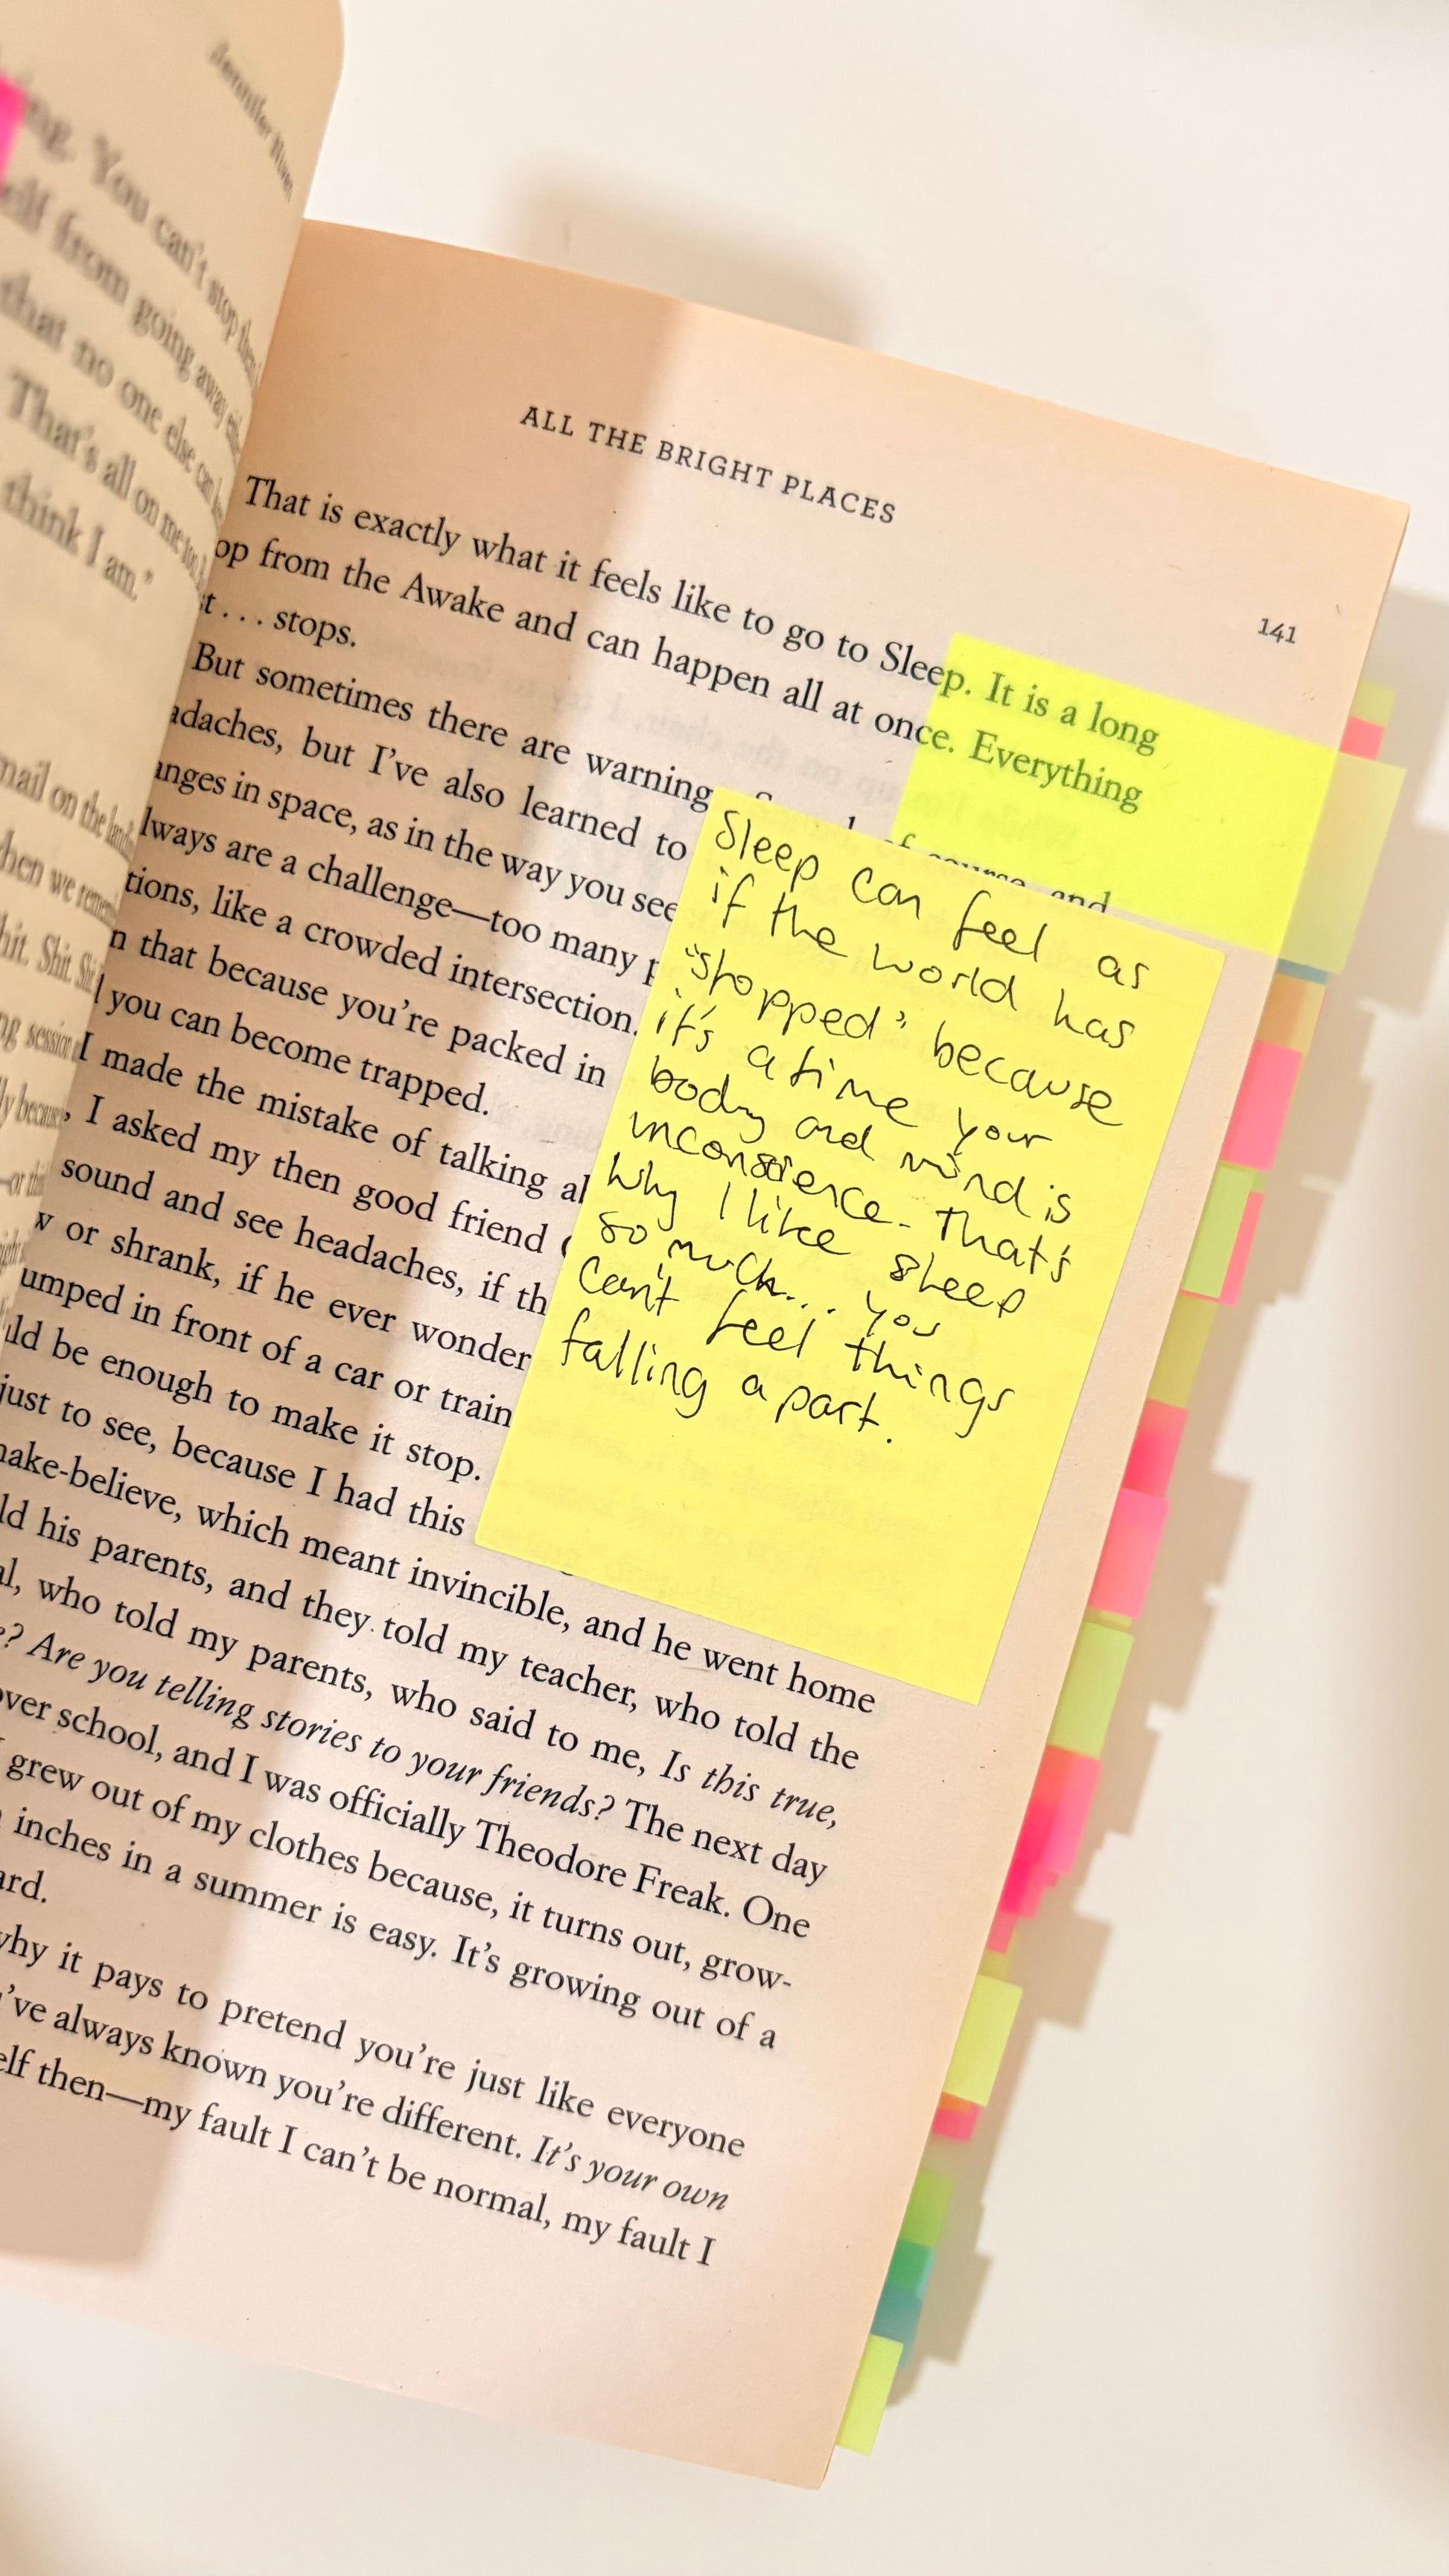 Jennifer Niven
ing. You can't stop them
elf from going away
that no one else can
That's all on me too
think I am."
mail on the
when we
hit. Shit.
ng session
ly because
—or
ALL THE BRIGHT PLACES
141
That is exactly what it feels like to go to Sleep. It is a long
op from the Awake and can happen all at once. Everything
t . . . stops.
But sometimes there are warning of course, and
adaches, but I've also learned to
anges in space, as in the way you see
lways are a challenge—too many p
tions, like a crowded intersection.
n that because you're packed in
you can become trapped.
I made the mistake of talking
, I asked my then good friend
sound and see headaches, if th
w or shrank, if he ever wonder
umped in front of a car or train
ld be enough to make it stop.
just to see, because I had this
make-believe, which meant invincible, and he went home
ld his parents, and they told my teacher, who told the
al, who told my parents, who said to me, Is this true,
e? Are you telling stories to your friends? The next day
over school, and I was officially Theodore Freak. One
grew out of my clothes because, it turns out, grow-
inches in a summer is easy. It's growing out of a
ard.
why it pays to pretend you're just like everyone
u've always known you're different. It's your own
elf then—my fault I can't be normal, my fault I
Sleep can feel as
if the world has
"stopped" because
it's a time your
body and mind is
unconscience. That's
why I like sleep
so much... you
can't feel things
falling apart.